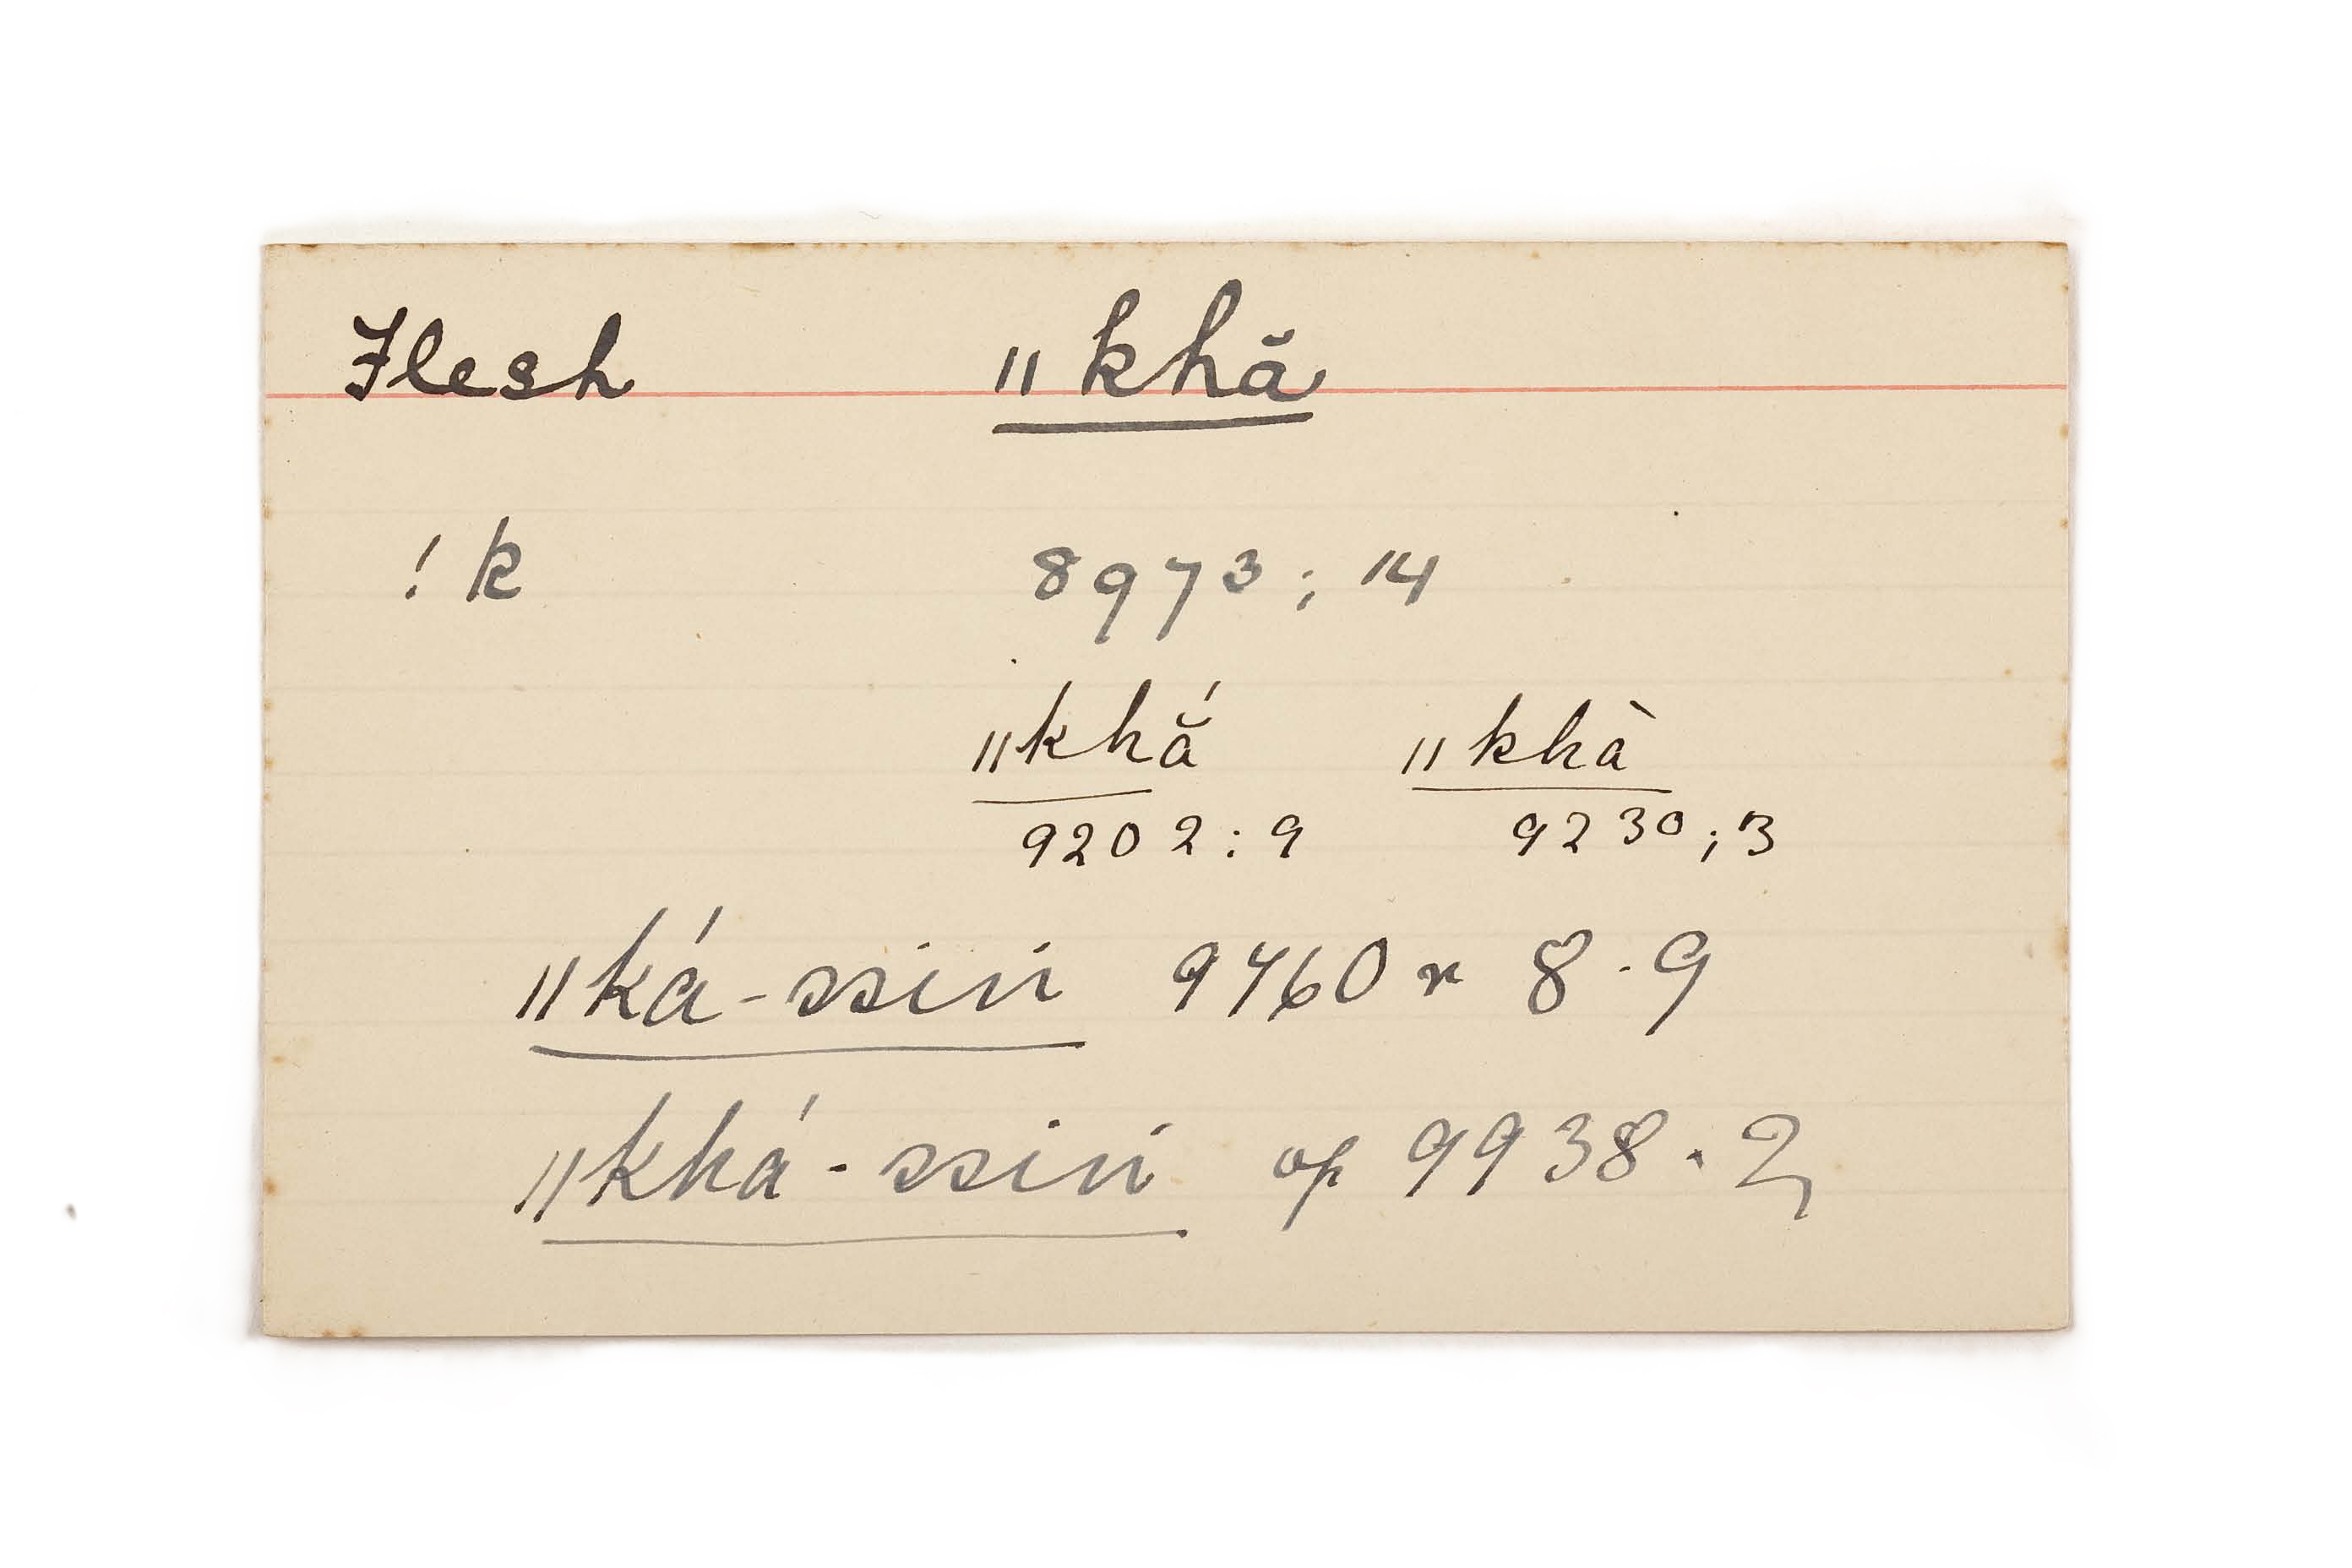 Flesh ǁkhă
!k 8973; 14
ǁkhắ ǁkhà
9202: 9 9230; 3
ǁká-ssiń 9460 r 8.9
ǁkhá-ssiń op 9938.2